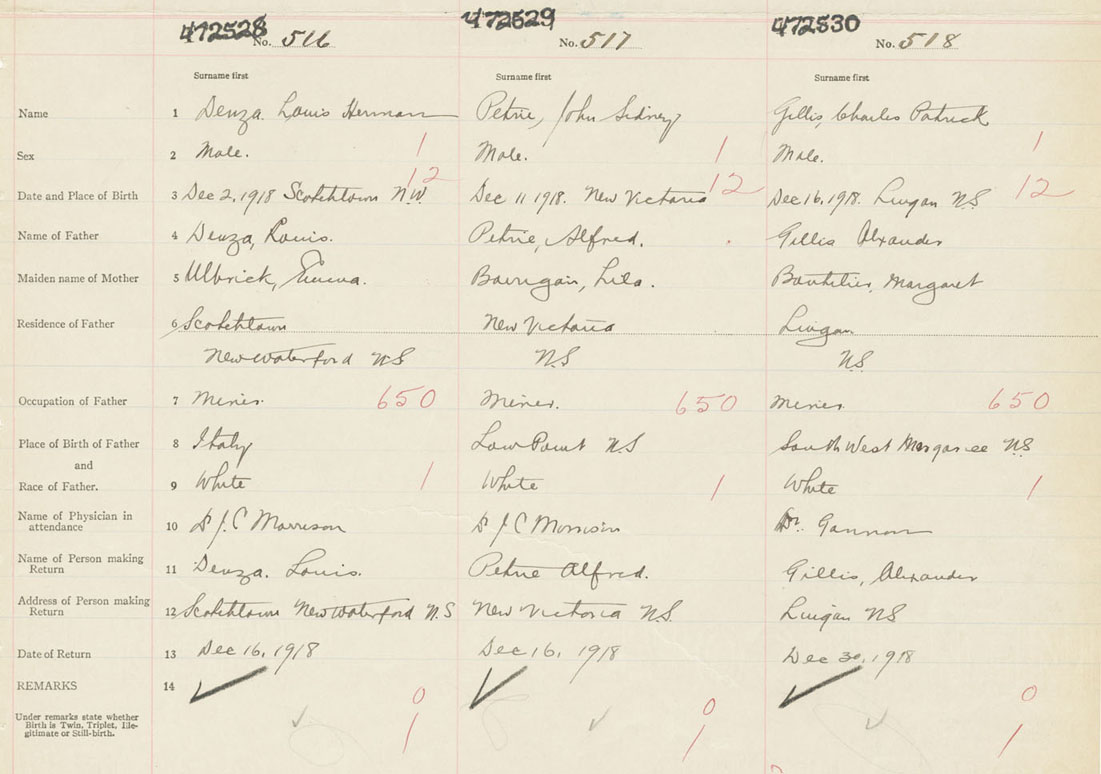 472528 472529 472530
No. 516 No. 517 No. 518
Surname first Surname first Surname first
Name 1 Denza Louis Herman Petrie, John Sidney Gillis, Charles Patrick
Sex 2 Male. 1 Male. 1 Male. 1
Date and Place of Birth 3 Dec 2, 1918 Scotchtown 12 Dec 11 1918. New Victoria 12 Dec 16, 1918. Lingan N.S 12
Name of Father 4 Denza, Louis. Petrie, Alfred. Gillis Alxander
Maiden name of Mother 5 Ulbrick, Emma. Lila. Margaret
Residence of Father 6 Scotchtown New Victoria Lingan
New Waterford N.S N.S N.S
Occupation of Father 7 Miner. 650 Miner. 650 Miner. 650
Place of Birth of Father 8 Italy Low Point N.S South West Margaree N.S
and
Race of Father. 9 White 1 White 1 White 1
Name of Physician in
attendance 10 Dr J. C Morrison Dr J C Morrison Dr. Gannon
Name of Person making
Return 11 Denza. Louis. Petrie Alfred. Gillis, Alxander
Address of Person making
Return 12 Scotchtown New Waterford N.S New Victoria N.S. Lingan N.S
Date of Return 13 Dec 16, 1918 Dec 16, 1918 Dec 30, 1918
REMARKS 14
0 0 0
Under remarks state whether
Birth is Twin, Triplet, Ille-
gitimate or Still-birth. 1 1 1